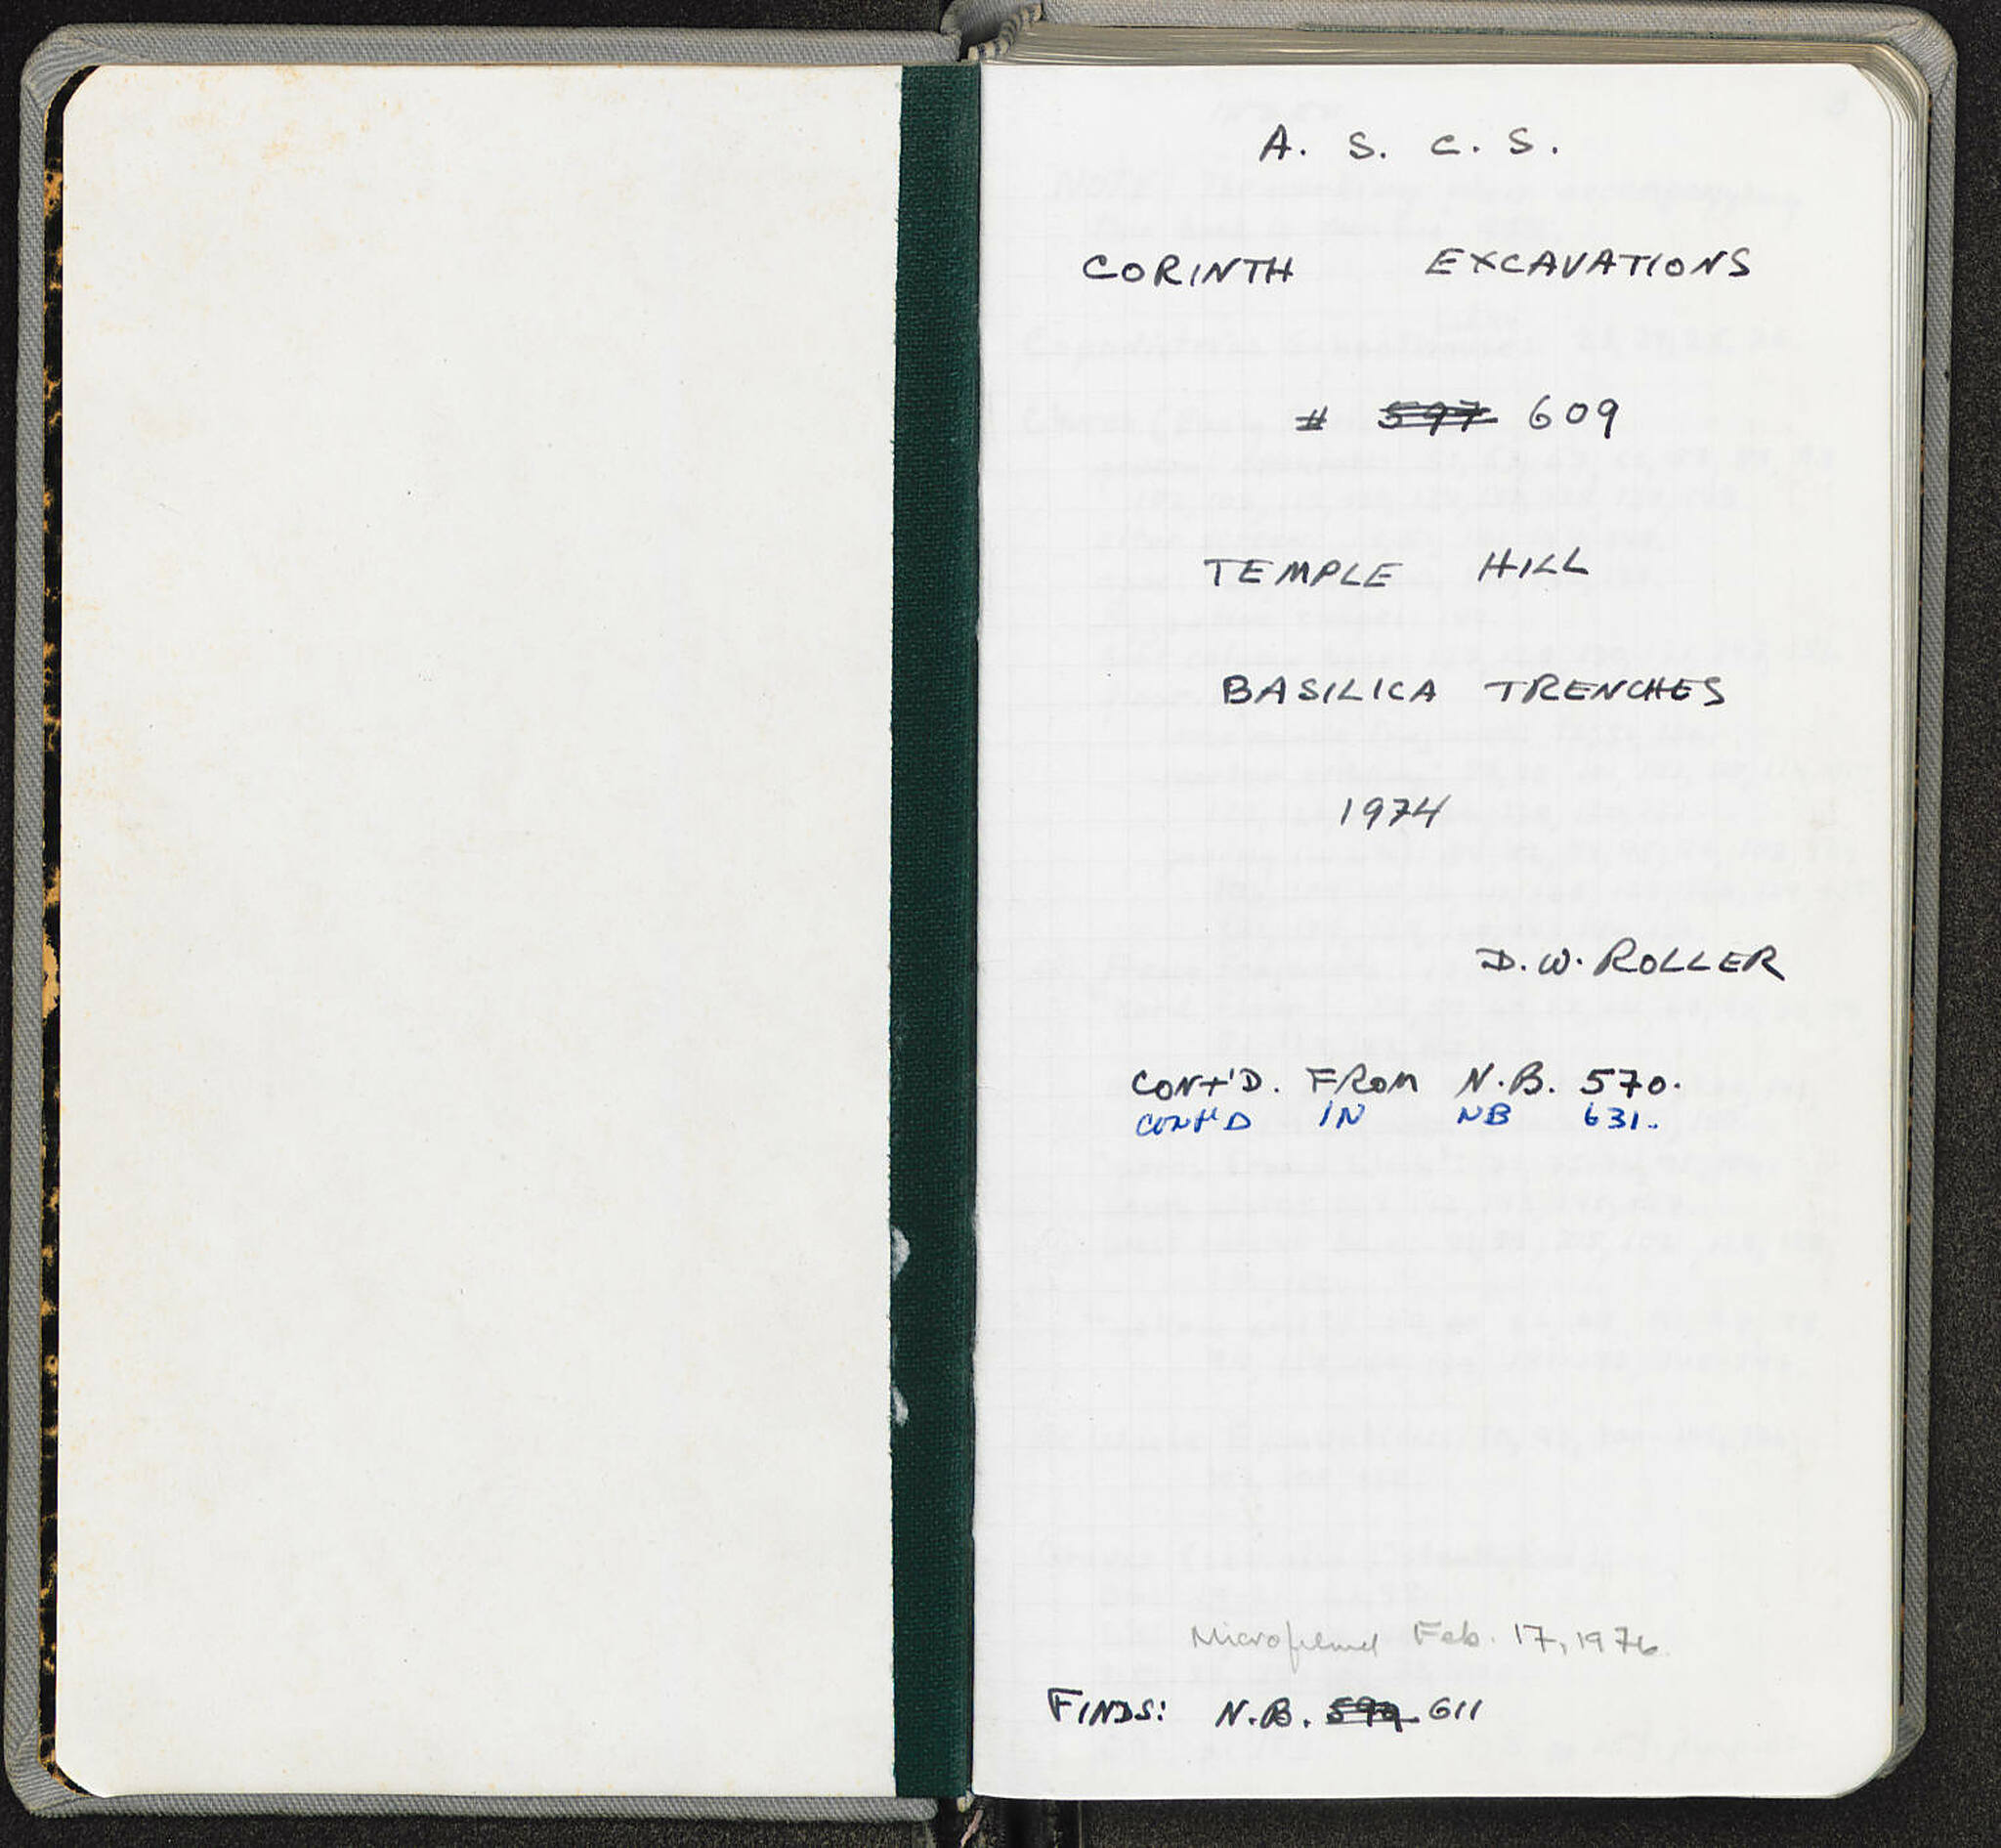 A. S. C. S.
CORINTH EXCAVATIONS
# 597 609
TEMPLE HILL
BASILICA TRENCHES
1974
D.W. ROLLER
CONT'D. FROM N.B. 570.
CONT'D IN NB 631.
Microfilmed Feb. 17, 1976
FINDS: N.B. 599 611